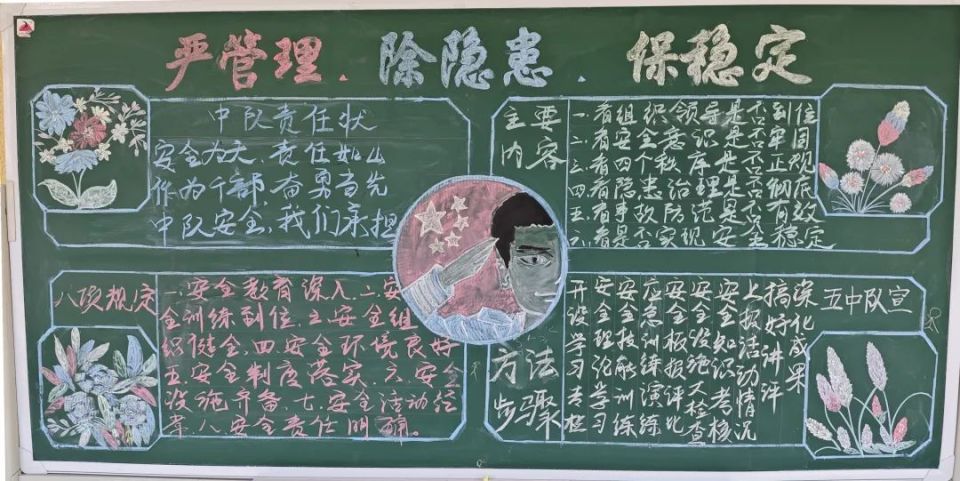 严管理.除隐患.保稳定
中队责任状
安全为天、责任如山
作为干部、奋勇当先
中队安全、我们承担
主要
内容
一、看组织领导是否到位
二、看安全意识是否牢固
三、看四个秩序是否正规
四、看隐患治理是否彻底
五、看事故防范是否有效
六、看是否实现安全稳定
八项规定
一、安全教育深入二、安
全训练到位、三、安全组
织健全、四、安全环境良好
五、安全制度落实、六、安全
设施齐备、七、安全活动经
常、八、安全责任明确。
方法
步骤
开设学习专栏
安全理论学习
安全技能训练
应急训练演练
安全板报评比
安全设施大检查
安全知识考核
上报活动情况
搞好讲评
深化成果
五中队宣